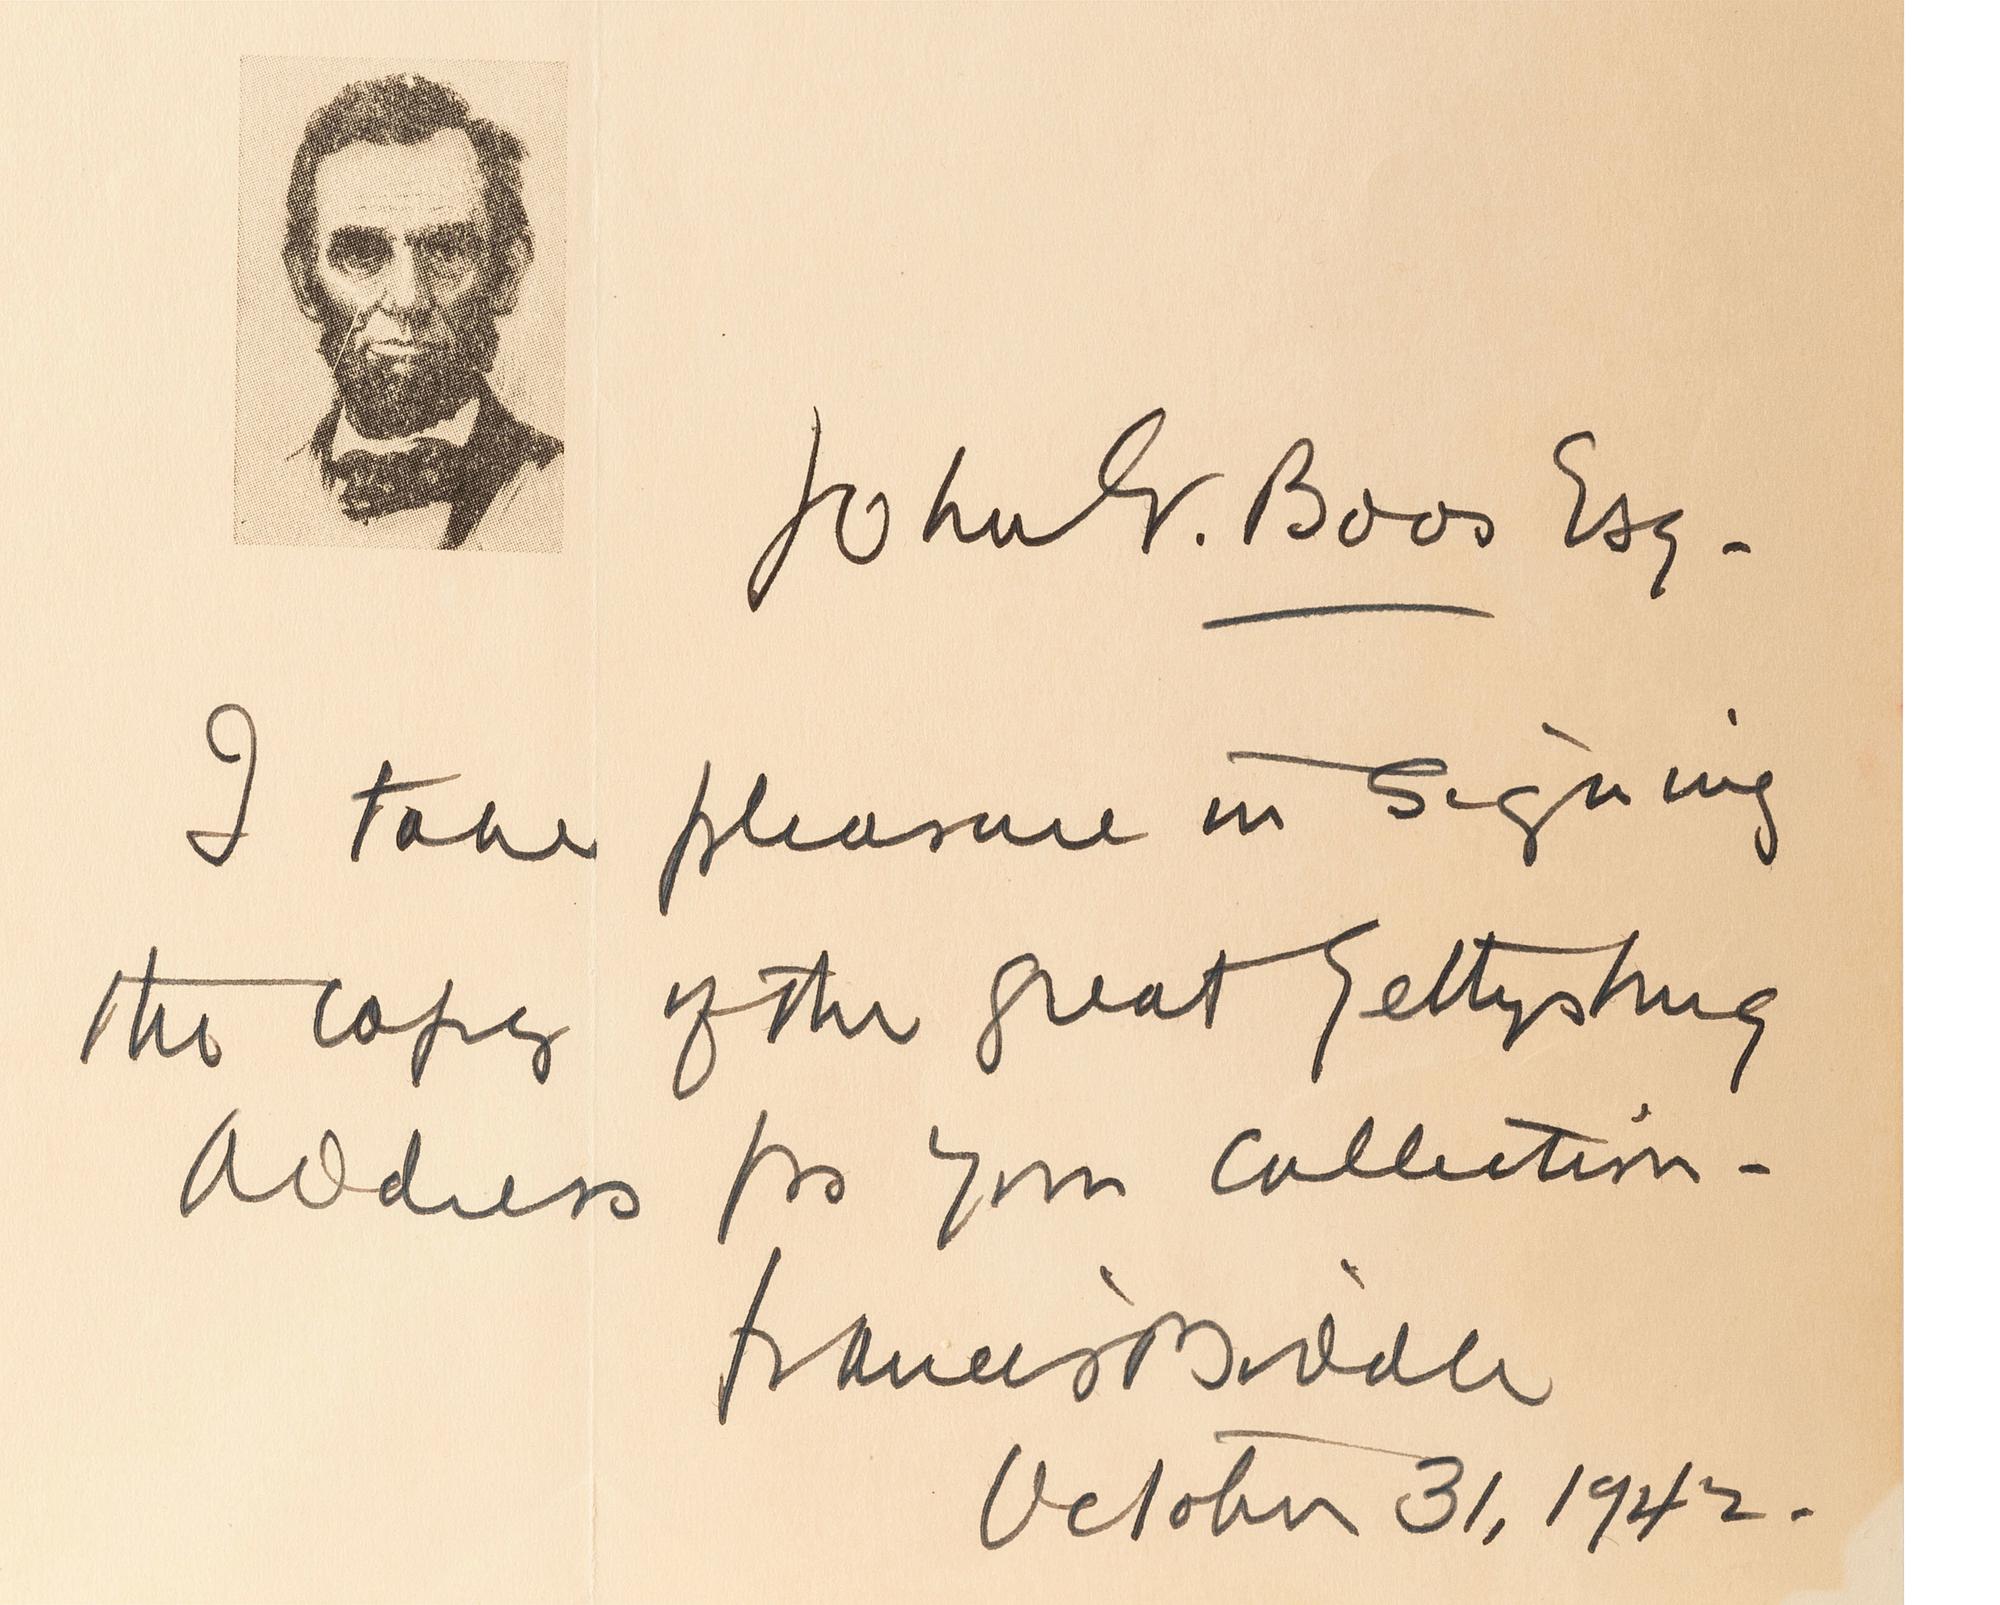 John W. Boos Esq.
I take pleasure in signing
the copy of the great Gettysburg
Address for your collection -
Francis Biddle
October 31, 1942.